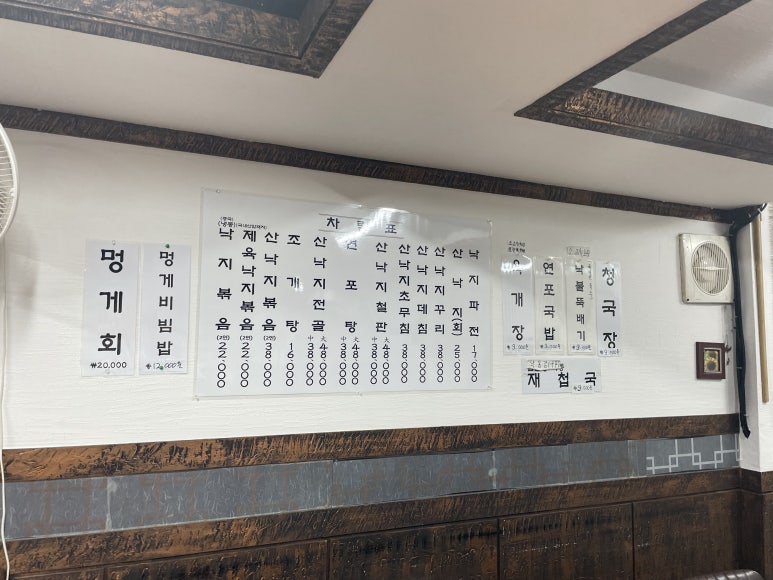 멍게회
₩20,000
멍게비빔밥
₩12,000원
차림표
낙지볶음 (2인) 22,000
제육낙지볶음 (2인) 22,000
산낙지볶음 (2인) 38,000
조개탕 16,000
산낙지전골 中 38,000 大 48,000
연포탕 中 38,000 大 48,000
산낙지철판 中 38,000 大 48,000
산낙지초무침 38,000
산낙지데침 38,000
산낙지꾸리 38,000
산낙지(회) 25,000
낙지파전 17,000
개장
연포국밥
낙불뚝배기
청국장
재첩국